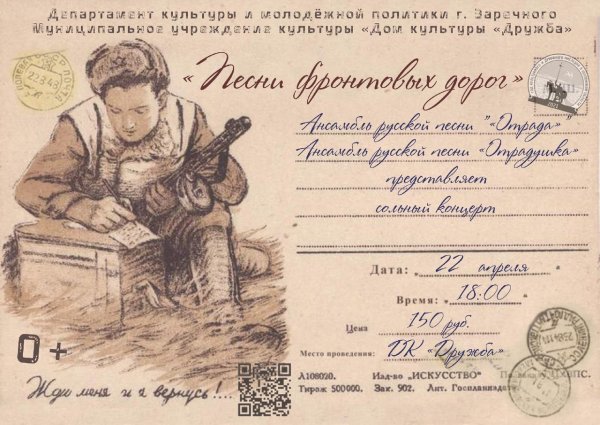 Департамент культуры и молодёжной политики г. Заречного
Муниципальное учреждение культуры «Дом культуры «Дружба»
22.3.43
«Песни фронтовых дорог»
Ансамбль русской песни "«Отрада"
Ансамбль русской песни «Отрадушка»
представляет
сольный концерт
Дата: 22 апреля
Время: 18:00
Цена 150 руб.
Место проведения: ДК «Дружба»
0+
Жди меня и я вернусь!....
А108020. Изд-во „ИСКУССТВО"
Тираж 500000. Зак. 902. Лит. Госпланиздат